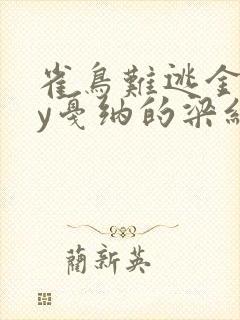 雀鳥難逃金
y戛纳的梁
蔺新英